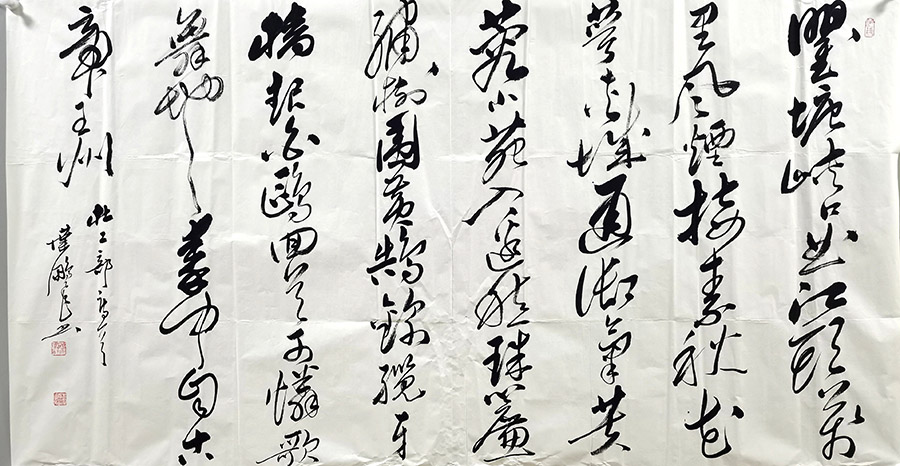 瞿塘峽口曲江頭萬
里風煙接素秋花
萼夾城通御氣芙
蓉小苑入邊愁珠簾
繡柱圍黃鵠錦纜牙
檣起白鷗回首可憐歌
舞地秦中自古
帝王州
杜工部秋興
鵬書